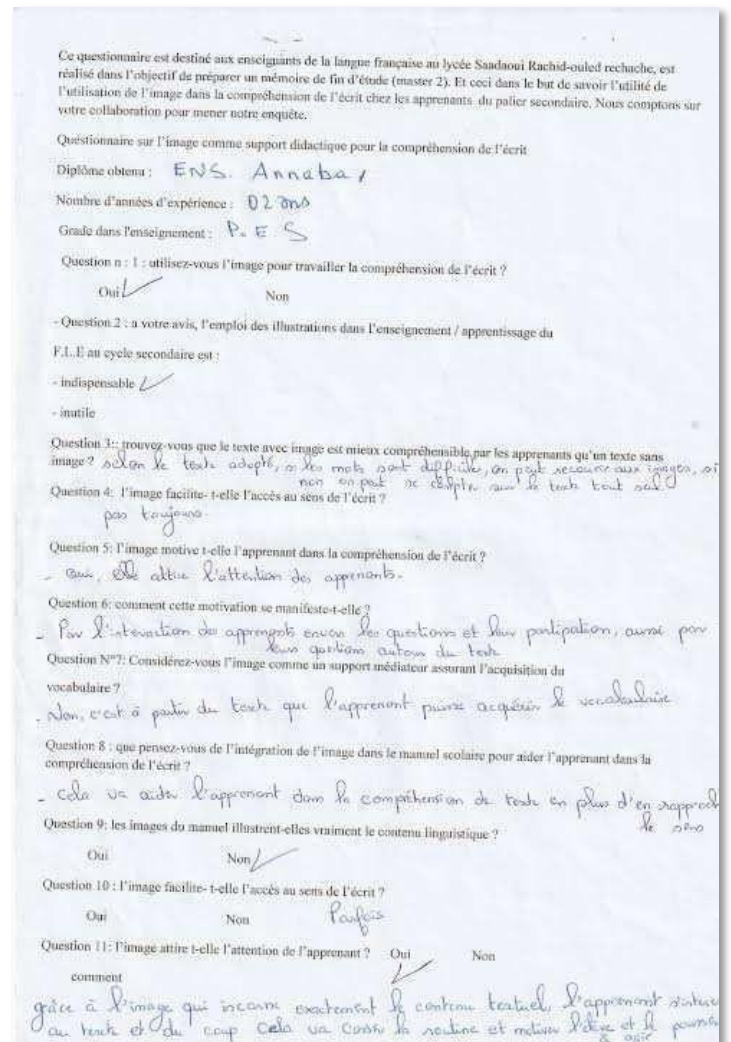 Ce questionnaire est destiné aux enseignants de la langue française au lycée Saadaoui Rachid-ouled rechache, est
réalisé dans l'objectif de préparer un mémoire de fin d'étude (master 2). Et ceci dans le but de savoir l'utilité de
l'utilisation de l'image dans la compréhension de l'écrit chez les apprenants du palier secondaire. Nous comptons sur
votre collaboration pour mener notre enquête.
Questionnaire sur l'image comme support didactique pour la compréhension de l'écrit
Diplôme obtenu : ENS. Annaba
Nombre d'années d'expérience : 02 ans
Grade dans l'enseignement : P. E S
Question n : 1 : utilisez-vous l'image pour travailler la compréhension de l'écrit ?
Oui Non
- Question 2 : a votre avis, l'emploi des illustrations dans l'enseignement / apprentissage du
F.L.E au cycle secondaire est :
- indispensable
- inutile
Question 3:: trouvez-vous que le texte avec image est mieux compréhensible par les apprenants qu'un texte sans
image ? selon le texte adopté, si les mots sont difficiles, on peut recourir aux images, si
non on peut se compter sur le texte tout seul
Question 4: l'image facilite- t-elle l'accès au sens de l'écrit ?
pas toujours.
Question 5: l'image motive t-elle l'apprenant dans la compréhension de l'écrit ?
- Oui, elle attire l'attention des apprenants.
Question 6: comment cette motivation se manifeste-t-elle ?
- Par l'interaction des apprenants envers les questions et leur partipation, aussi par
leurs questions autour du texte
Question N°7: Considérez-vous l'image comme un support médiateur assurant l'acquisition du
vocabulaire ?
- Non, c'est à partir du texte que l'apprenant puisse acquérir le vocabulaire
Question 8 : que pensez-vous de l'intégration de l'image dans le manuel scolaire pour aider l'apprenant dans la
compréhension de l'écrit ?
- cela va aider l'apprenant dans la compréhension de texte en plus d'en rapproch
le sens
Question 9: les images du manuel illustrent-elles vraiment le contenu linguistique ?
Oui Non
Question 10 : l'image facilite- t-elle l'accès au sens de l'écrit ?
Oui Non Parfois
Question 11: l'image attire t-elle l'attention de l'apprenant ? Oui Non
comment
grâce à l'image qui incarne exactement le contenu textuel, l'apprenant
au texte et du coup cela va casser la routine et motiver l'élève et le